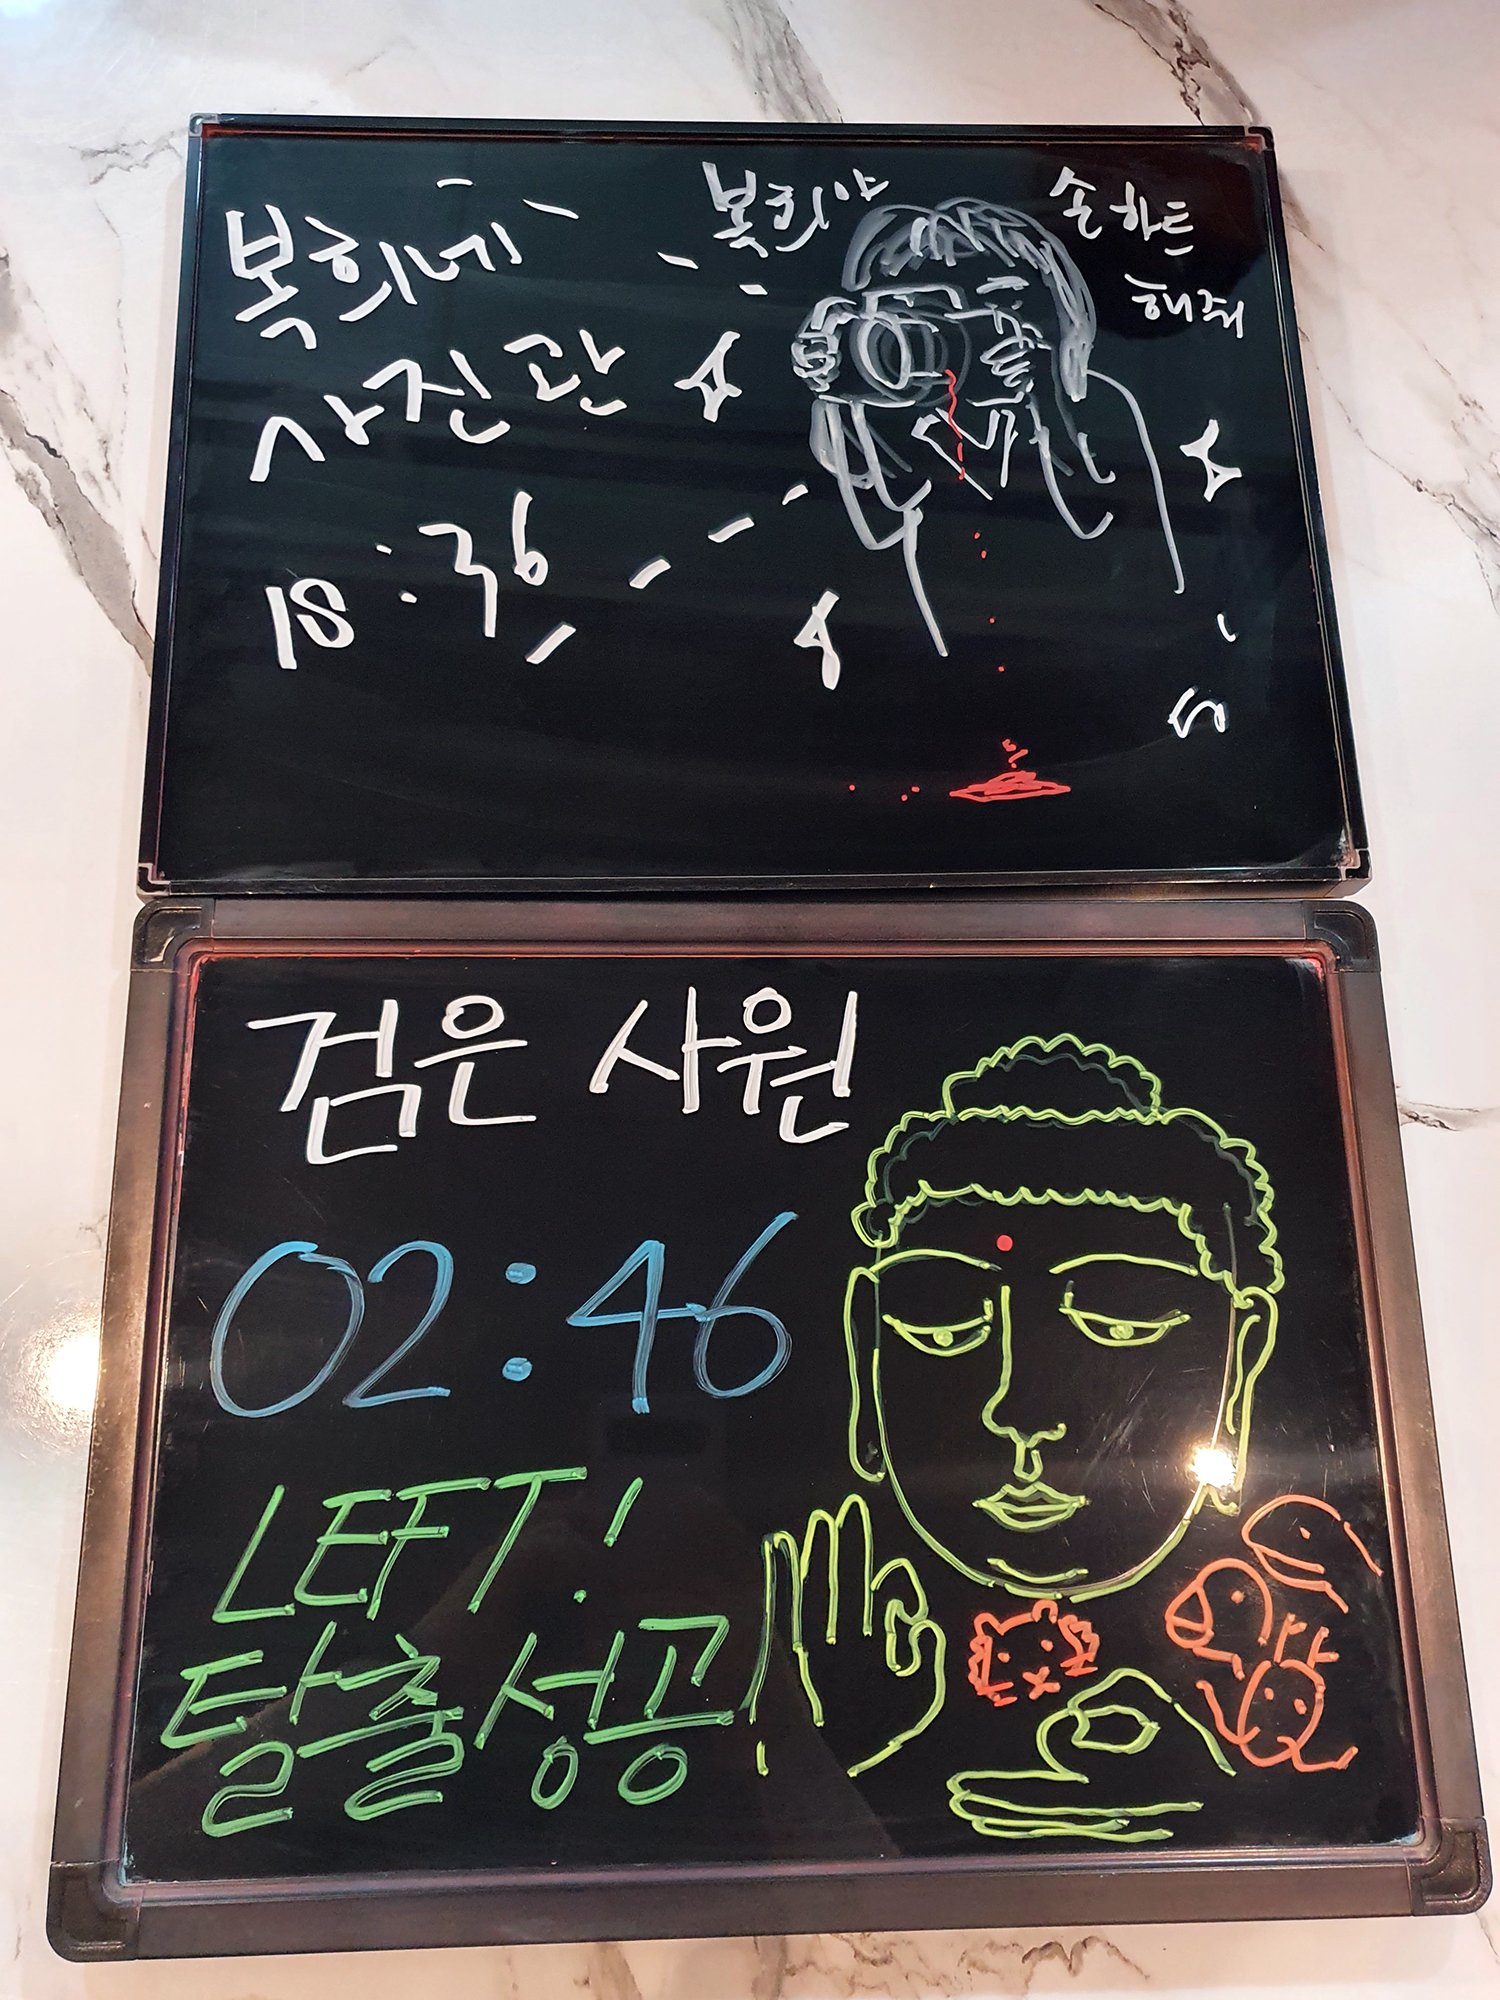 복희네
사진관
18:36
복희야
손하트
해줘
검은 사원
02:46
LEFT!
탈출성공